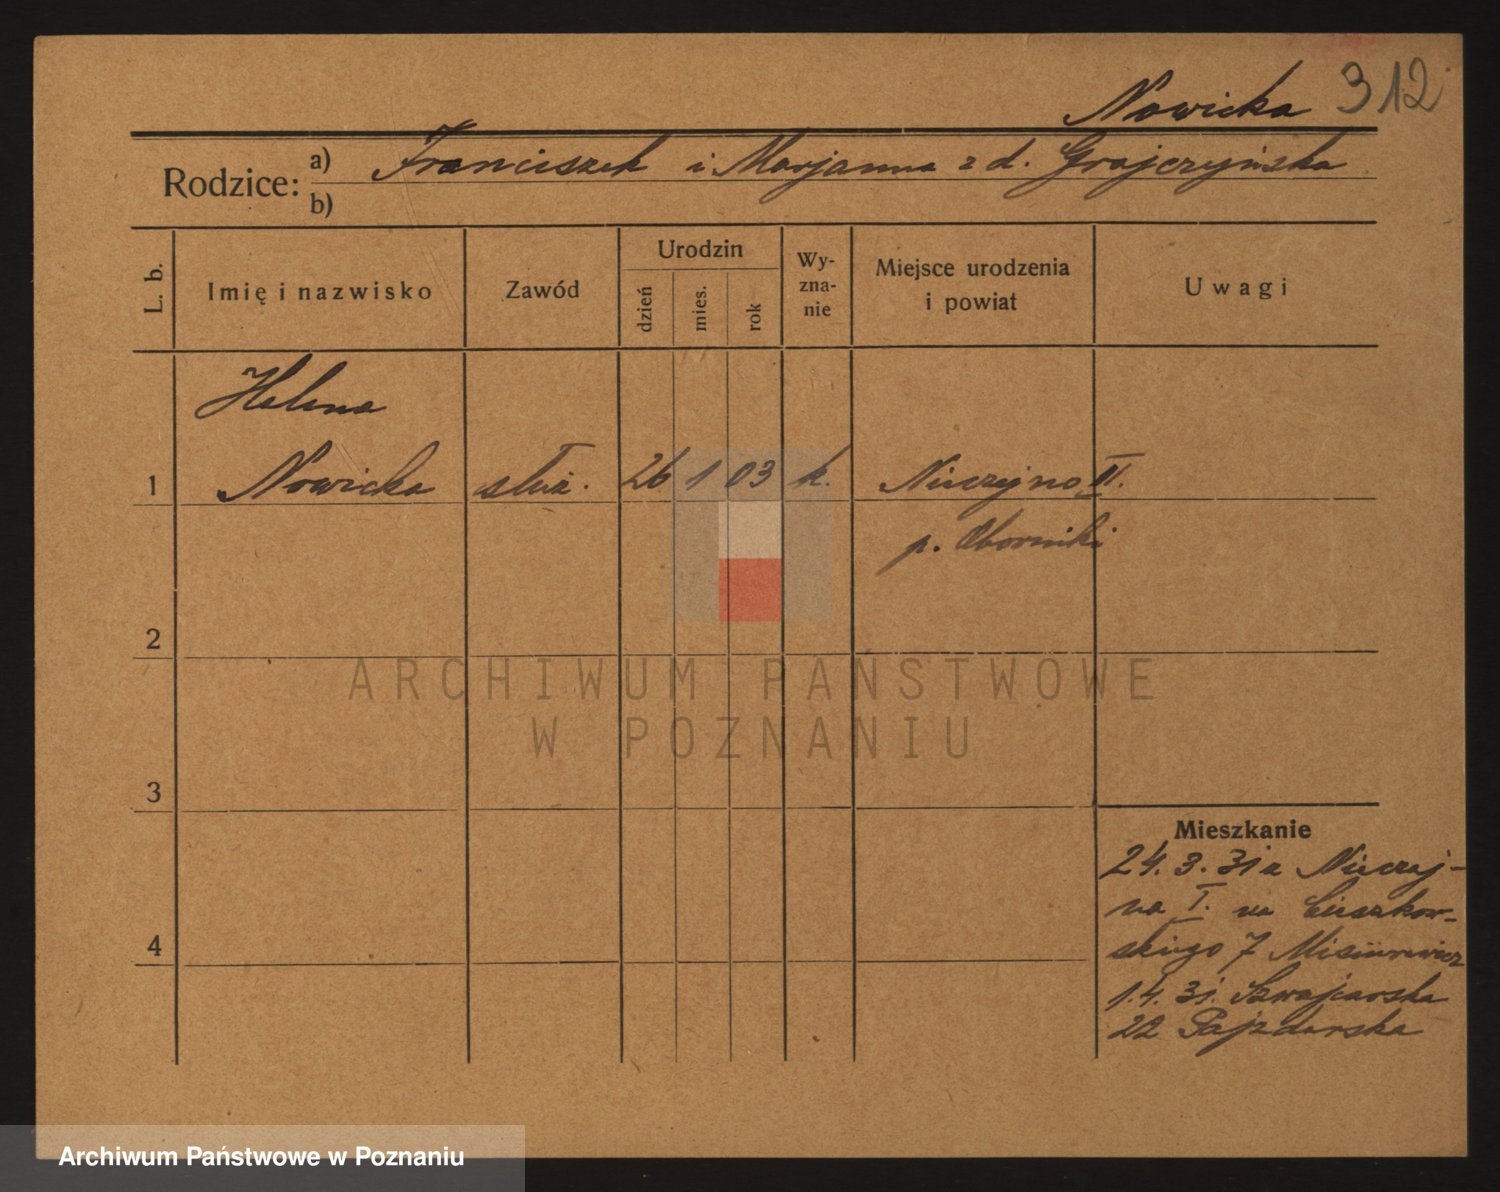 Nowicka 312
Rodzice: a) Franciszek i Marjanna z d. Grajczyńska
b)
L. b.
Imię i nazwisko
Zawód
Urodzin
dzień
mies.
rok
Wy-
zna-
nie
Miejsce urodzenia
i powiat
Uwagi
Helena
1 Nowicka służ. 26 1 03 k. Nieczajno II.
p. Oborniki
2
3
4
Mieszkanie
24. 3. 31 z Nieczaj-
na I. na Cieszkow-
skiego 7 Misiurewicz
1. 4. 31. Szwajcarska
22 Pajzderska
ARCHIWUM PAŃSTWOWE
W POZNANIU
Archiwum Państwowe w Poznaniu